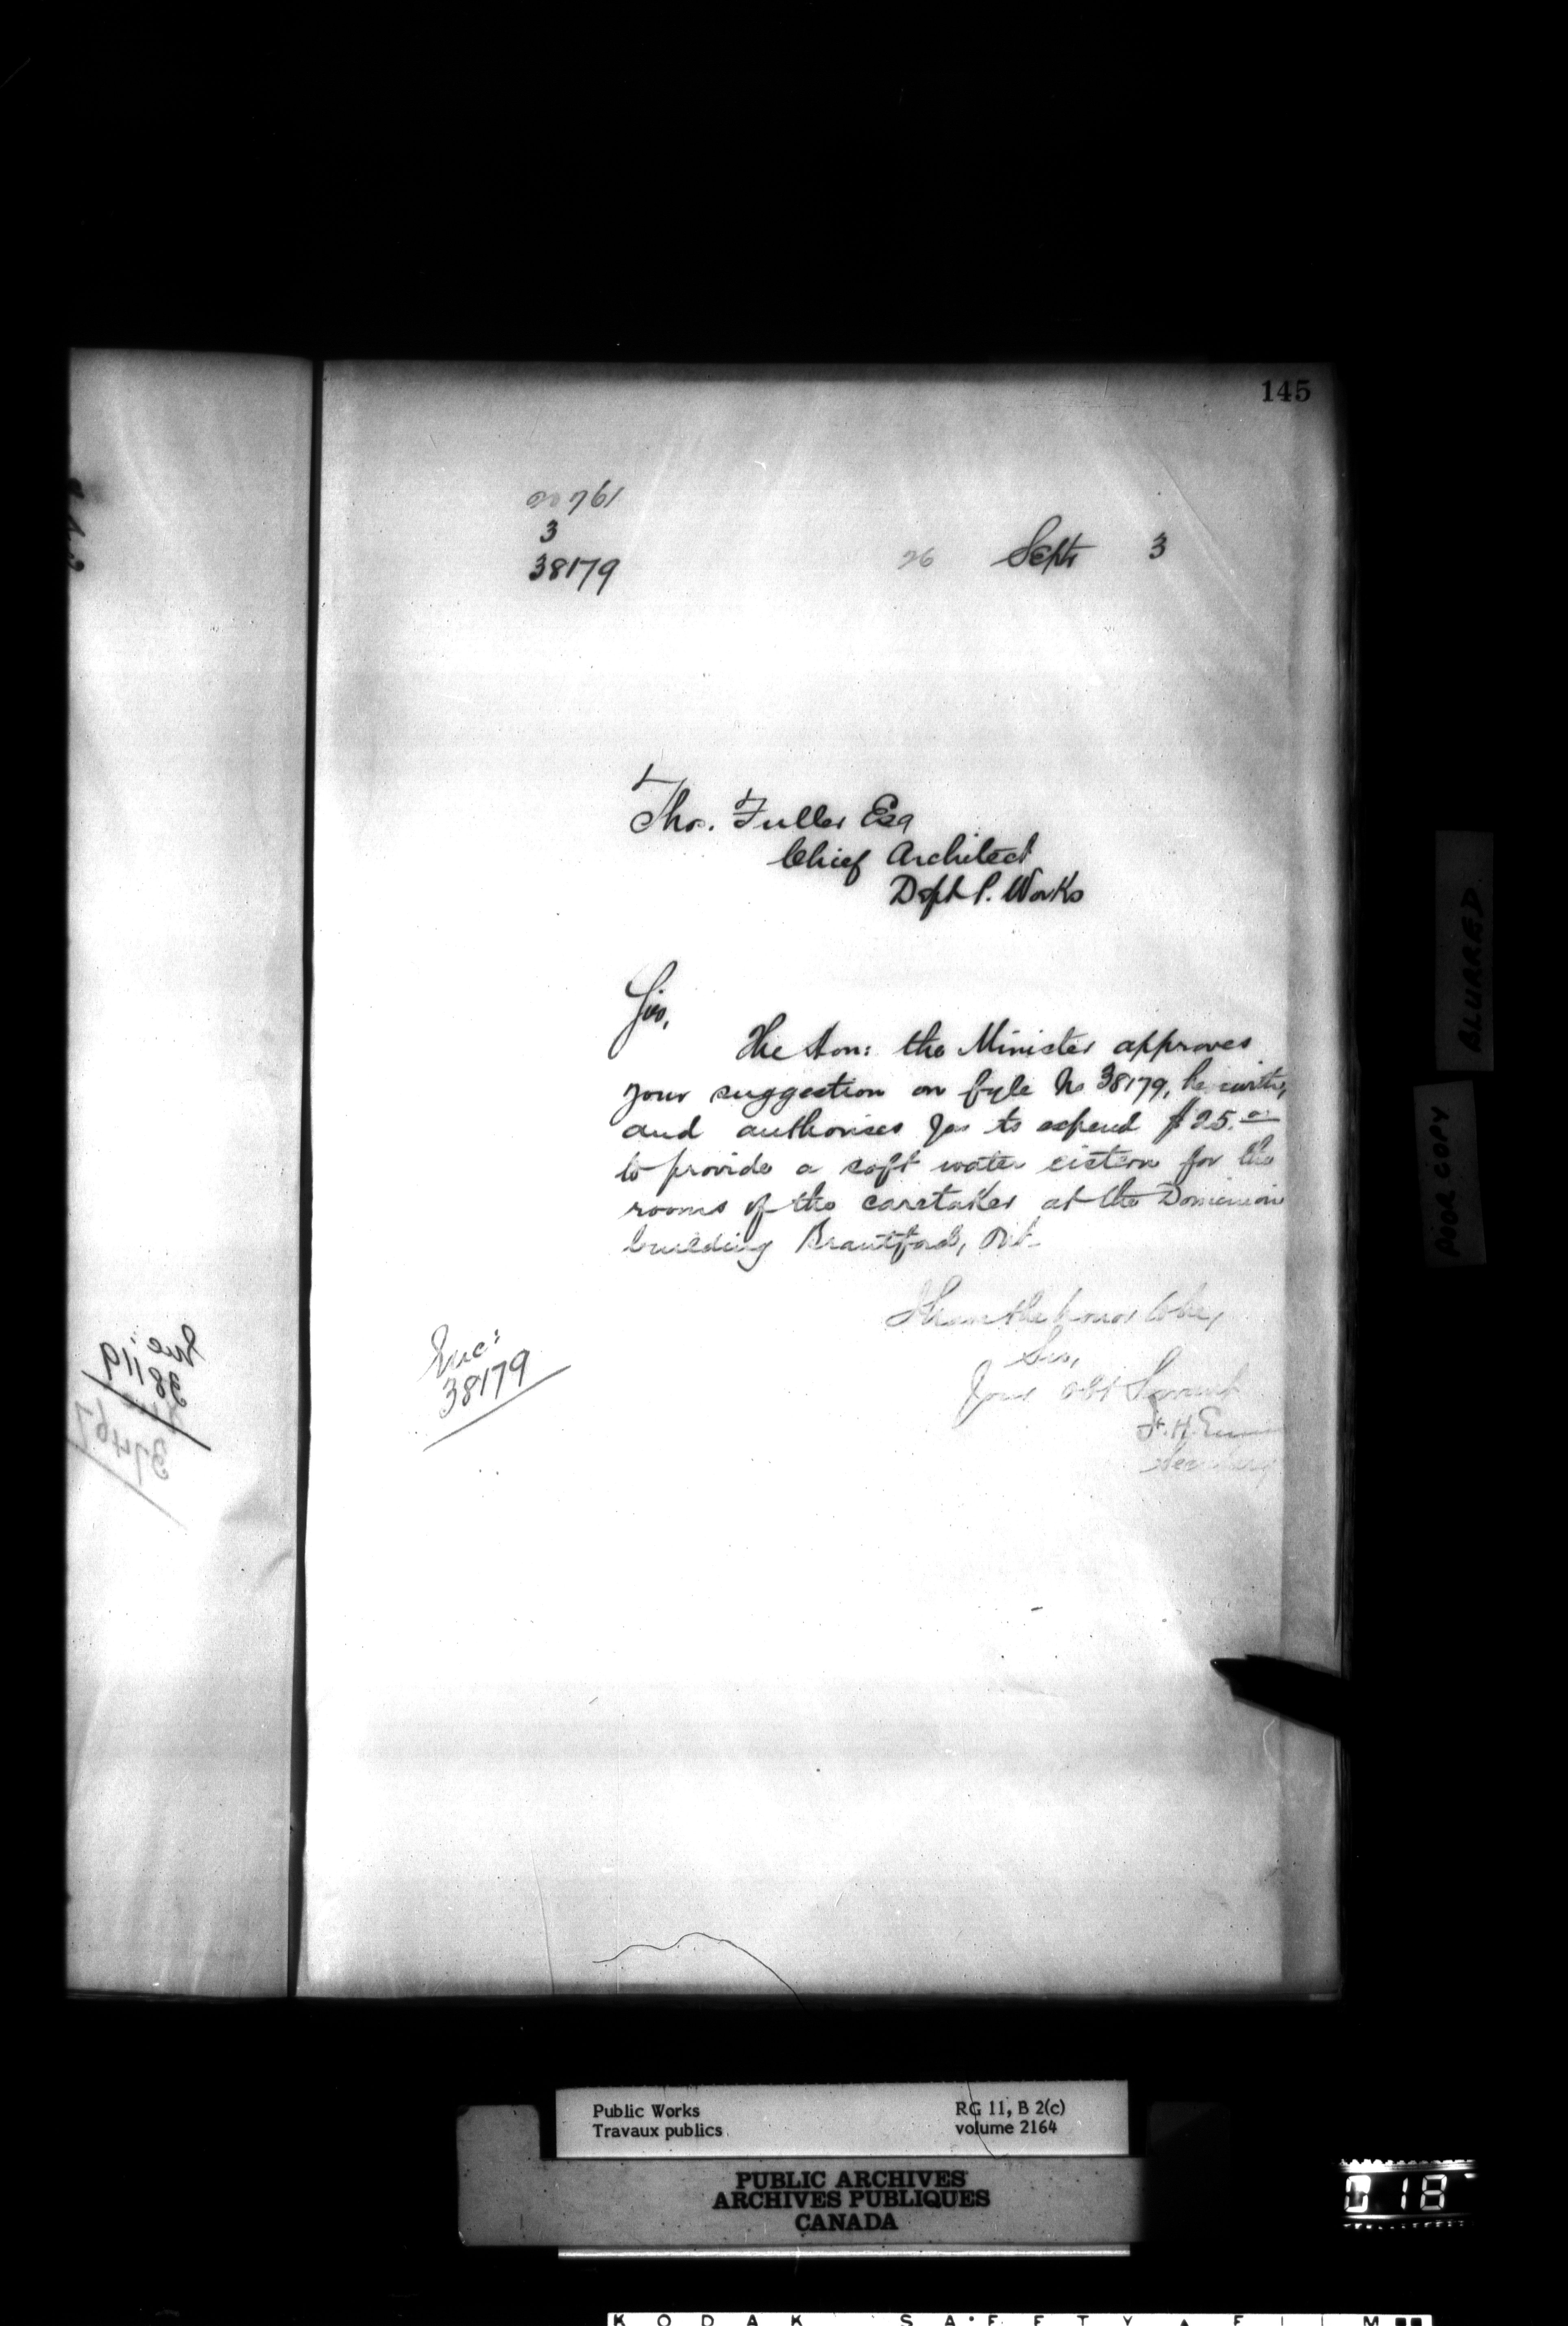 145
20761
3
38179
26 Sept 3
Thos. Fuller Esq
Chief Architect
Dept P. Works
Sir,
The Hon: the Minister approves
your suggestion on fyle No 38179, herewith,
and authorises you to expend $25.00
to provide a soft water cistern for the
rooms of the caretaker at the Dominion
building Brantford, Ont.
I have the honor to be,
Sir,
Your obt Servant
F. H. Ennis
Secretary
Enc:
38179
Enc:
38119
37467
BLURRED
POOR COPY
Public Works
Travaux publics
RG 11, B 2(c)
volume 2164
PUBLIC ARCHIVES
ARCHIVES PUBLIQUES
CANADA
18
KODAK SAFETY FILM